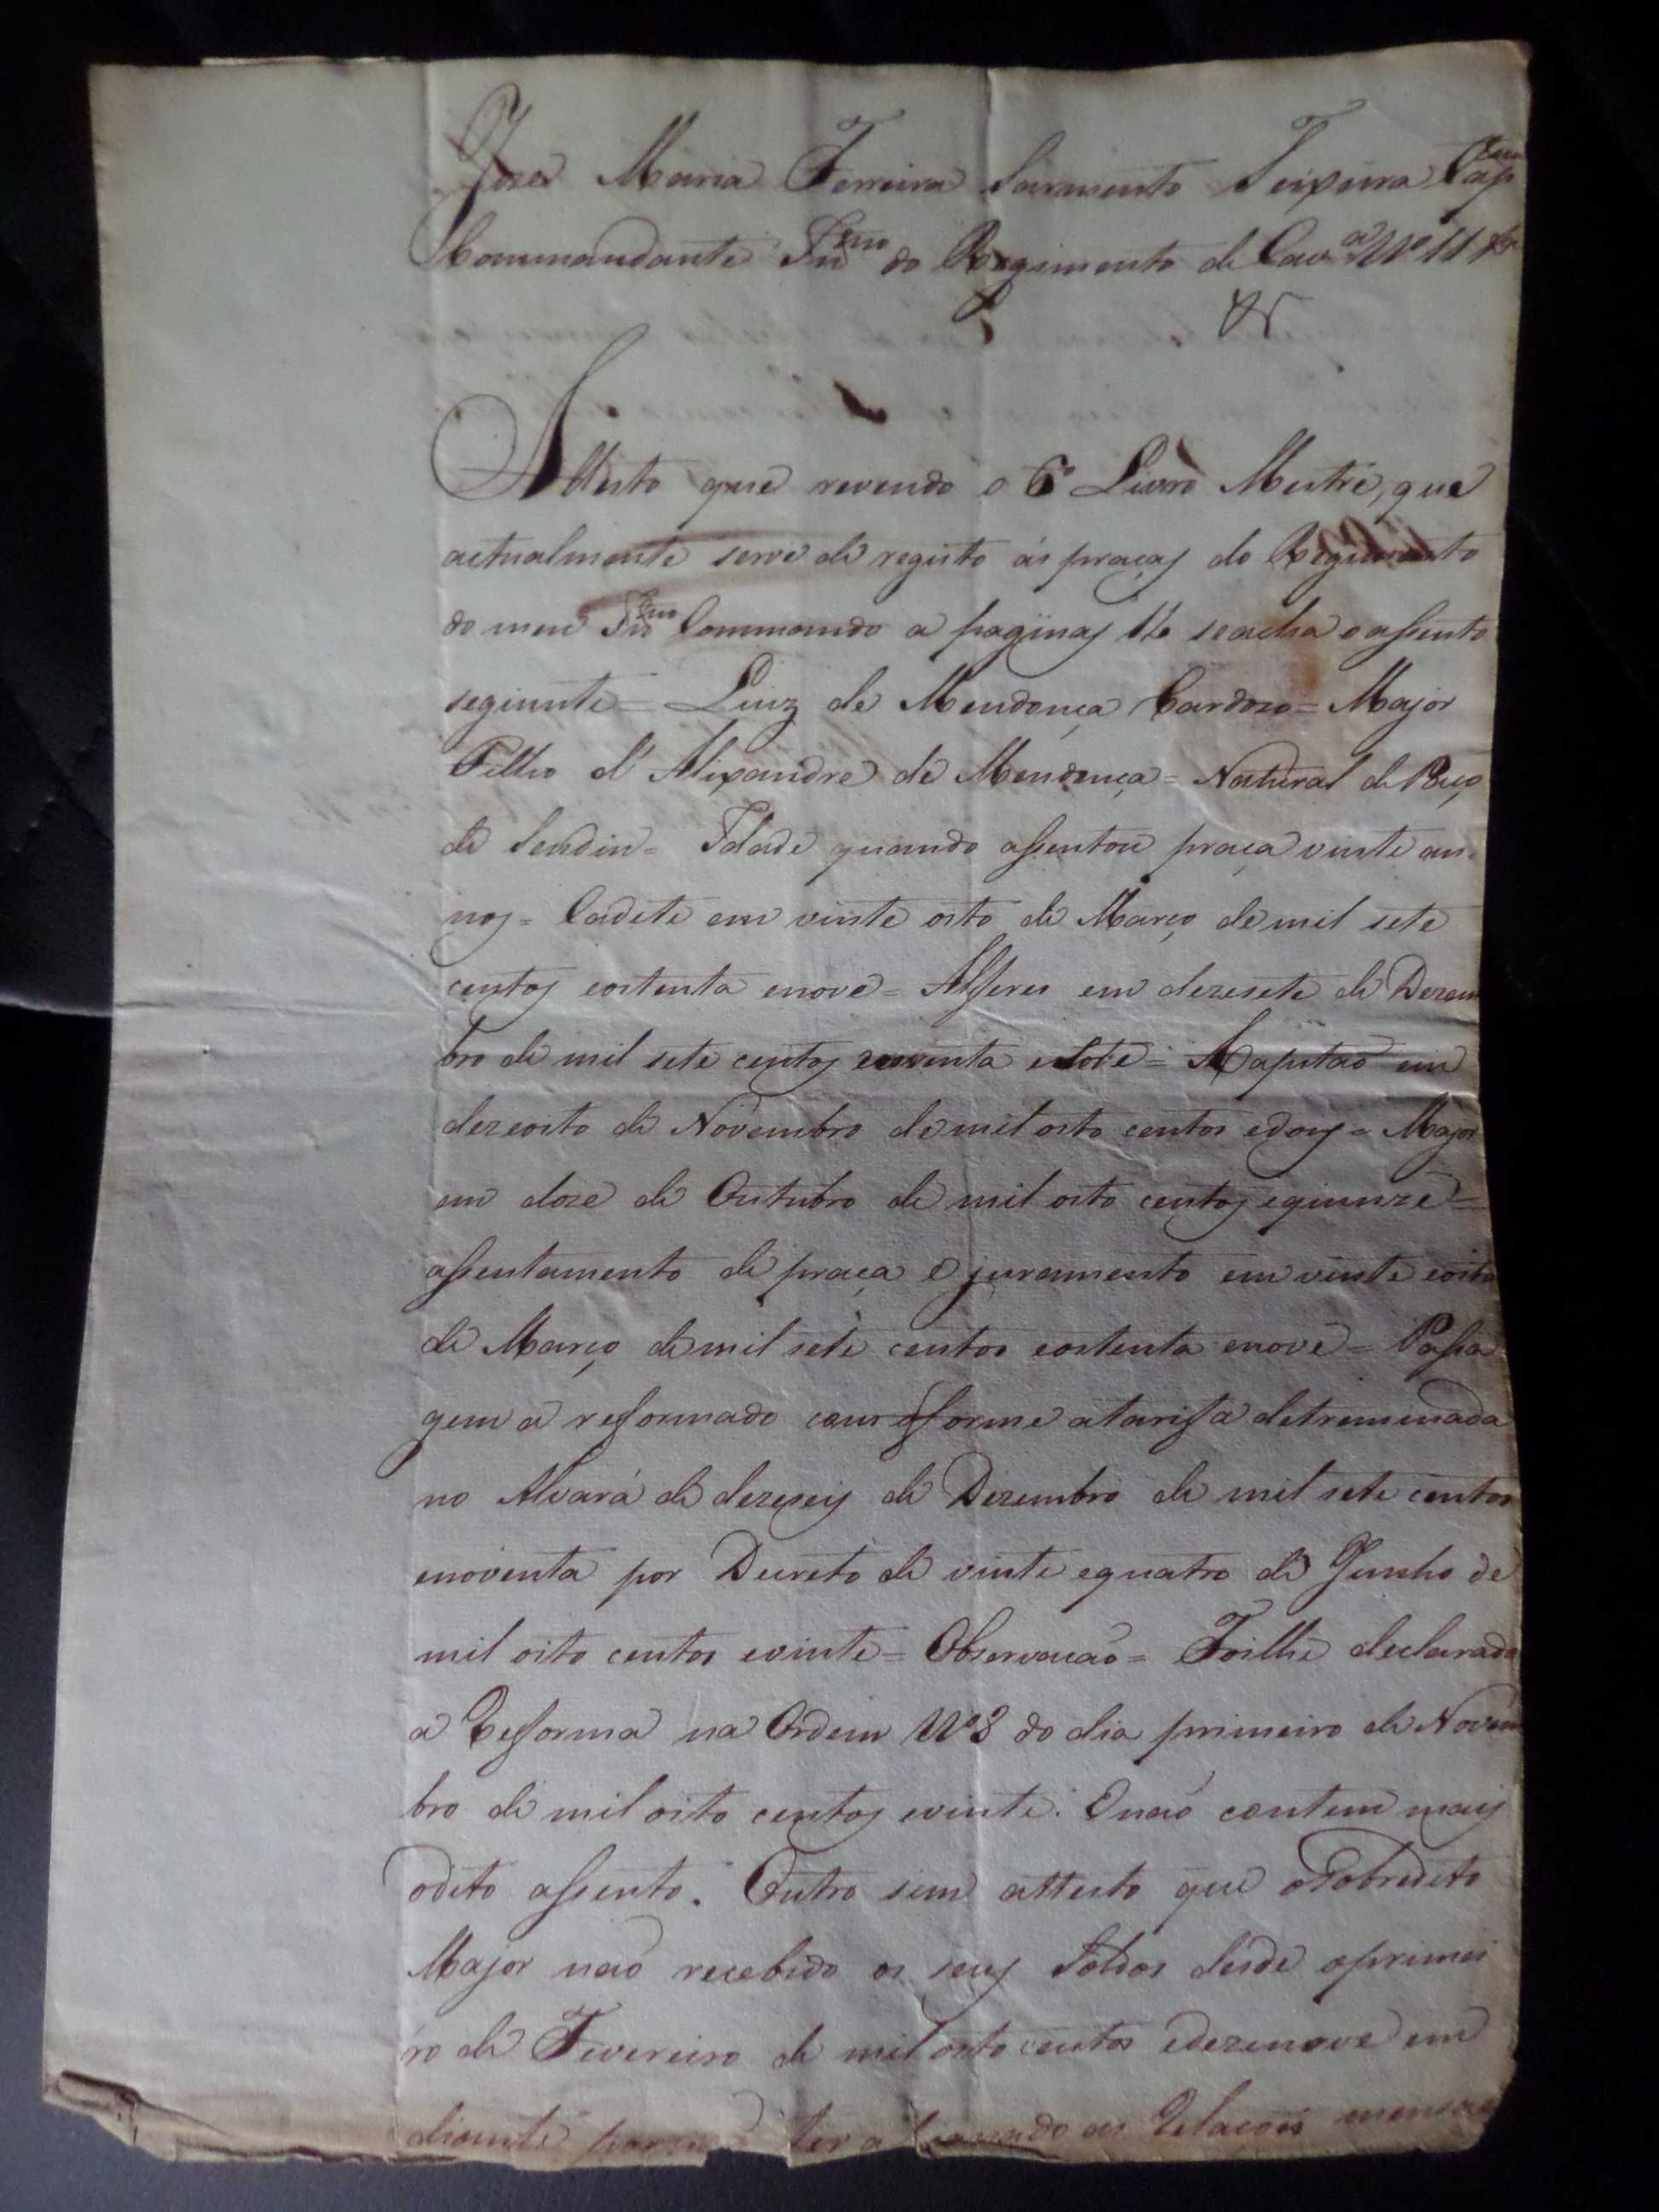 Joze Maria Ferreira Sarmento Teixeira Cap
Commandante do Regimento de Cav.a N.o 11
Attesto que revendo o 6.o Livro Mestre, que
actualmente serve de registo ás praças do Regimento
do meu Commando a paginas se acha o assento
seguinte = Luiz de Mendonça Cardozo = Major
Filho d'Alixandre de Mendonça = Natural de
de Sendin = Idade quando assentou praça vinte an-
nos = Cadete em vinte oito de Março de mil sete
centos eoitenta enove = Alferes em dezesete de Dezem
bro de mil sete centos enoventa esete = Capitaõ em
dezeoito de Novembro de mil oito centos edoys = Major
em doze de Outubro de mil oito centos equinze =
assentamento de praça e juramento em vinte eoito
de Março de mil sete centos eoitenta enove = Passa
gem a refformado comfforme a tariffa detreminada
no Alvará de dezeseis de Dezembro de mil sete centos
enoventa por Decreto de vinte equatro de Junho de
mil oito centos evinte = Observacaõ = Foilhe declarado
a Refforma na Ordem N.o 8 do dia primeiro de Novem
bro de mil oito centos evinte. Enaõ contem mais
odito assento. Outro sim attesto que o Sobredito
Major naõ recebido os seus Soldos desde oprimei
ro de Fevereiro de mil oito centos edezenove em
diante ter a as Relaçoẽs mensaes